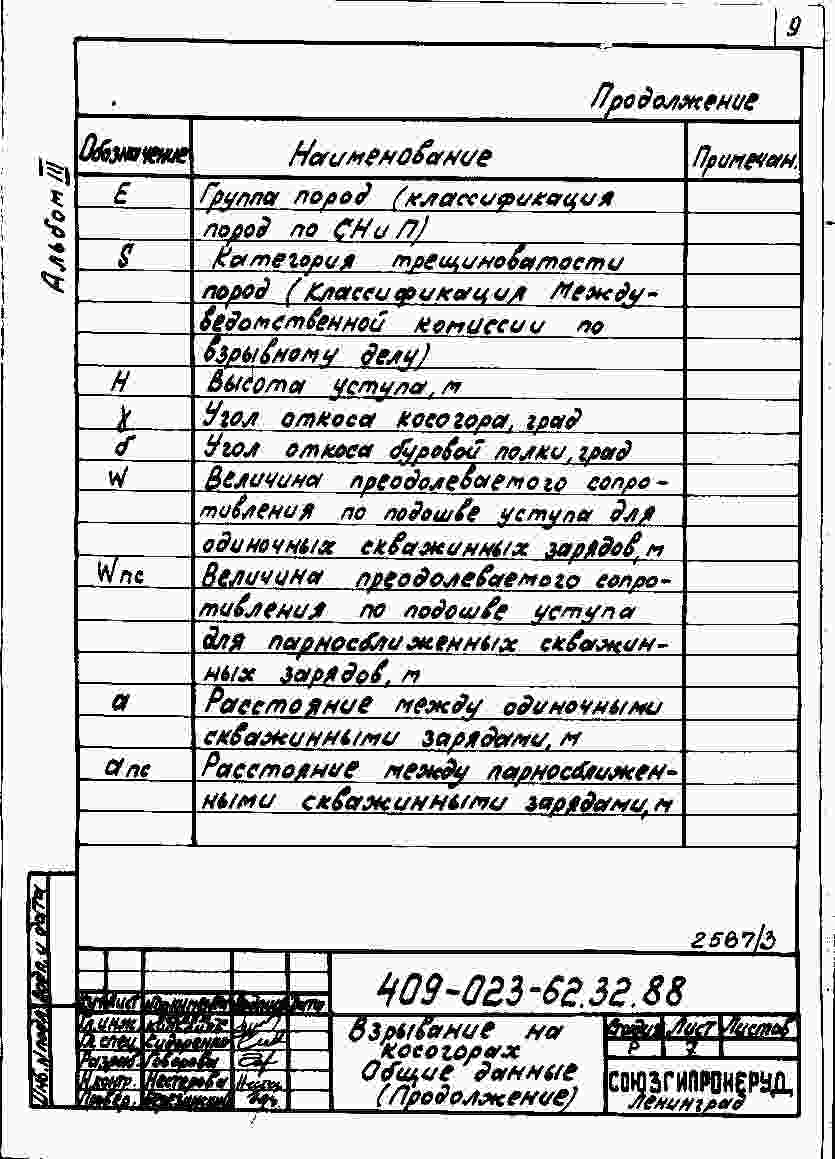 9
Продолжение
Альбом III
Обозначение Наименование Примечан.
E Группа пород (классификация
пород по СНиП)
S Категория трещиноватости
пород (Классификация Между-
ведомственной комиссии по
взрывному делу)
H Высота уступа, м
γ Угол откоса косогора, град
δ Угол откоса буровой полки, град
W Величина преодолеваемого сопро-
тивления по подошве уступа для
одиночных скважинных зарядов, м
Wпс Величина преодолеваемого сопро-
тивления по подошве уступа
для парносближенных скважин-
ных зарядов, м
a Расстояние между одиночными
скважинными зарядами, м
aпс Расстояние между парносближен-
ными скважинными зарядами, м
2587/3
409-023-62.32.88
Инв.N подл. Подп. и дата
Лист Дата
Гл.инж.
Гл.спец. Сидоренко
Разраб. Говорова
Н.контр. Нестерова
Провер.
Взрывание на
косогорах
Общие данные
(Продолжение)
Стадия Лист Листов
Р 7
СОЮЗГИПРОНЕРУД
Ленинград